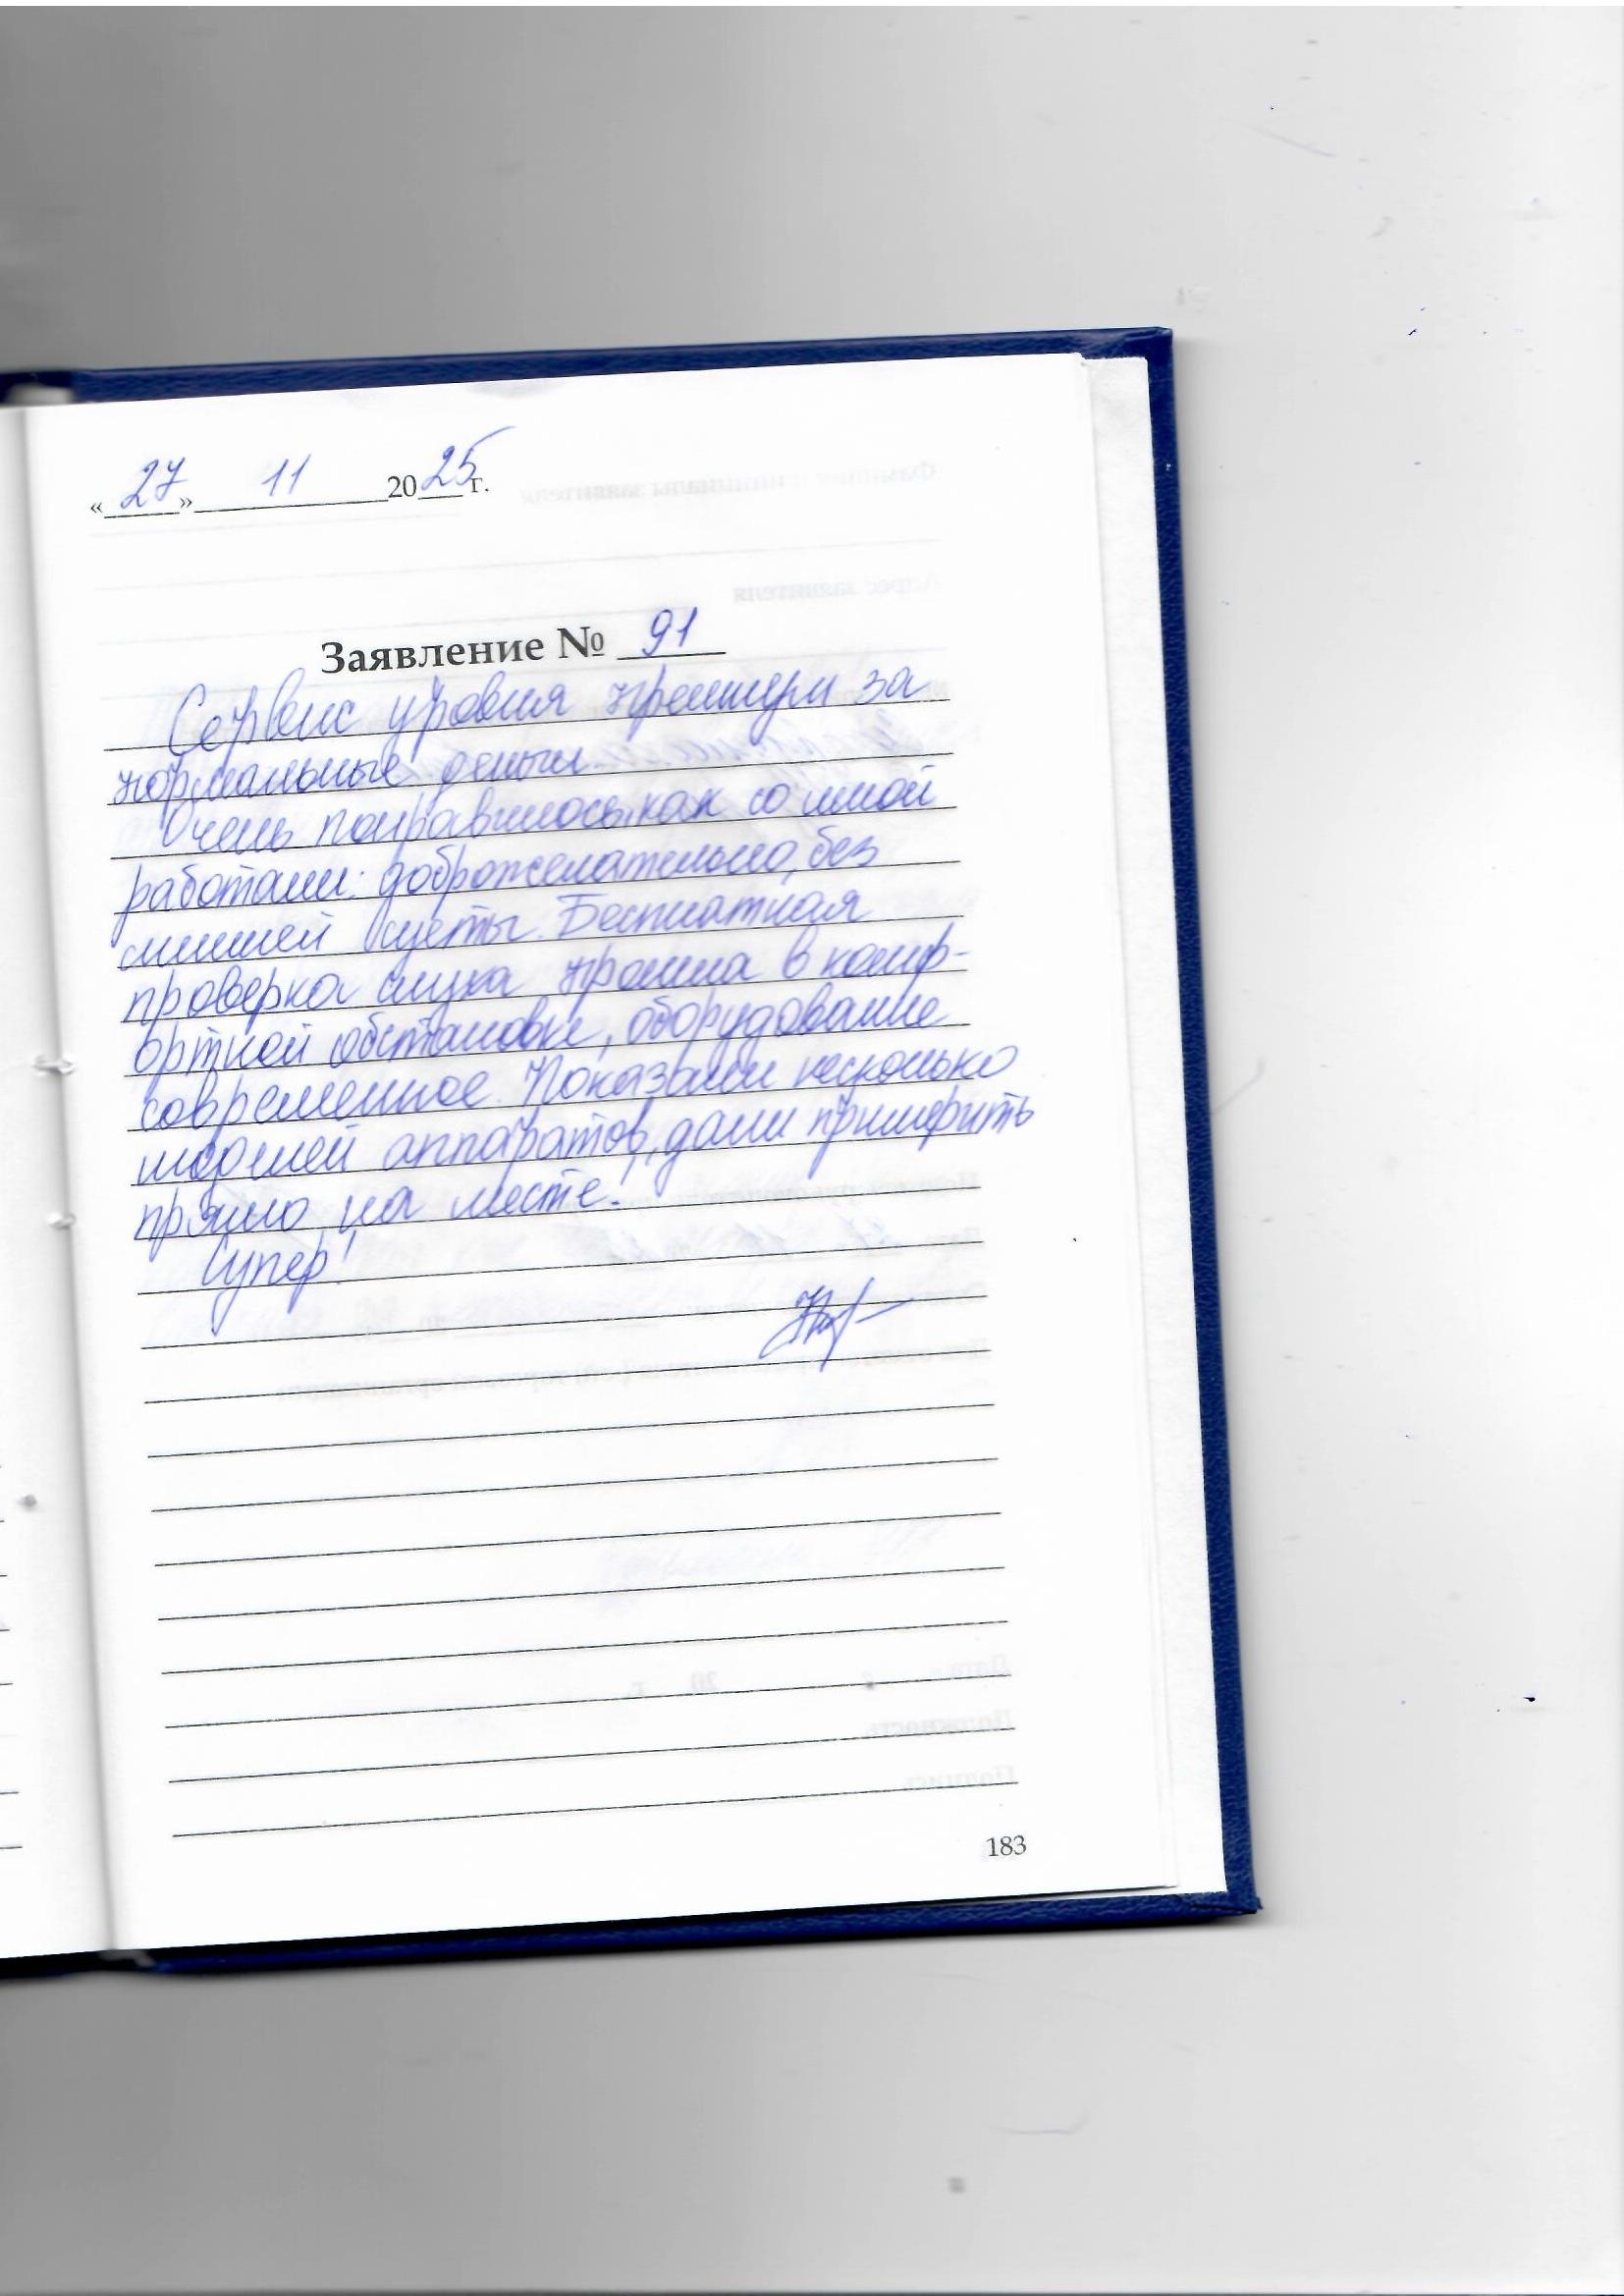 «27» 11 2025 г.
Заявление № 91
Сервис уровня премиум за
нормальные деньги.
Очень понравилось, как со мной
работали: доброжелательно, без
лишней суеты. Бесплатная
проверка слуха прошла в комф-
ортной обстановке, оборудование
современное. Показали несколько
моделей аппаратов, дали примерить
прямо на месте!
Супер!
183